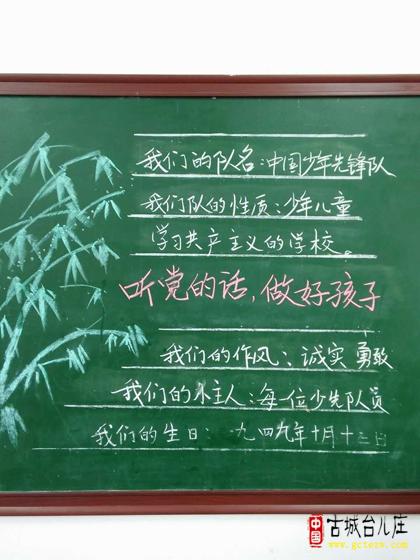 我们的队名:中国少年先锋队
我们队的性质:少年儿童
学习共产主义的学校。
听党的话,做好孩子
我们的作风:诚实 勇敢
我们的小主人:每一位少先队员
我们的生日:九四九年十月十三日
中国 古城台儿庄
www.gctezw.com